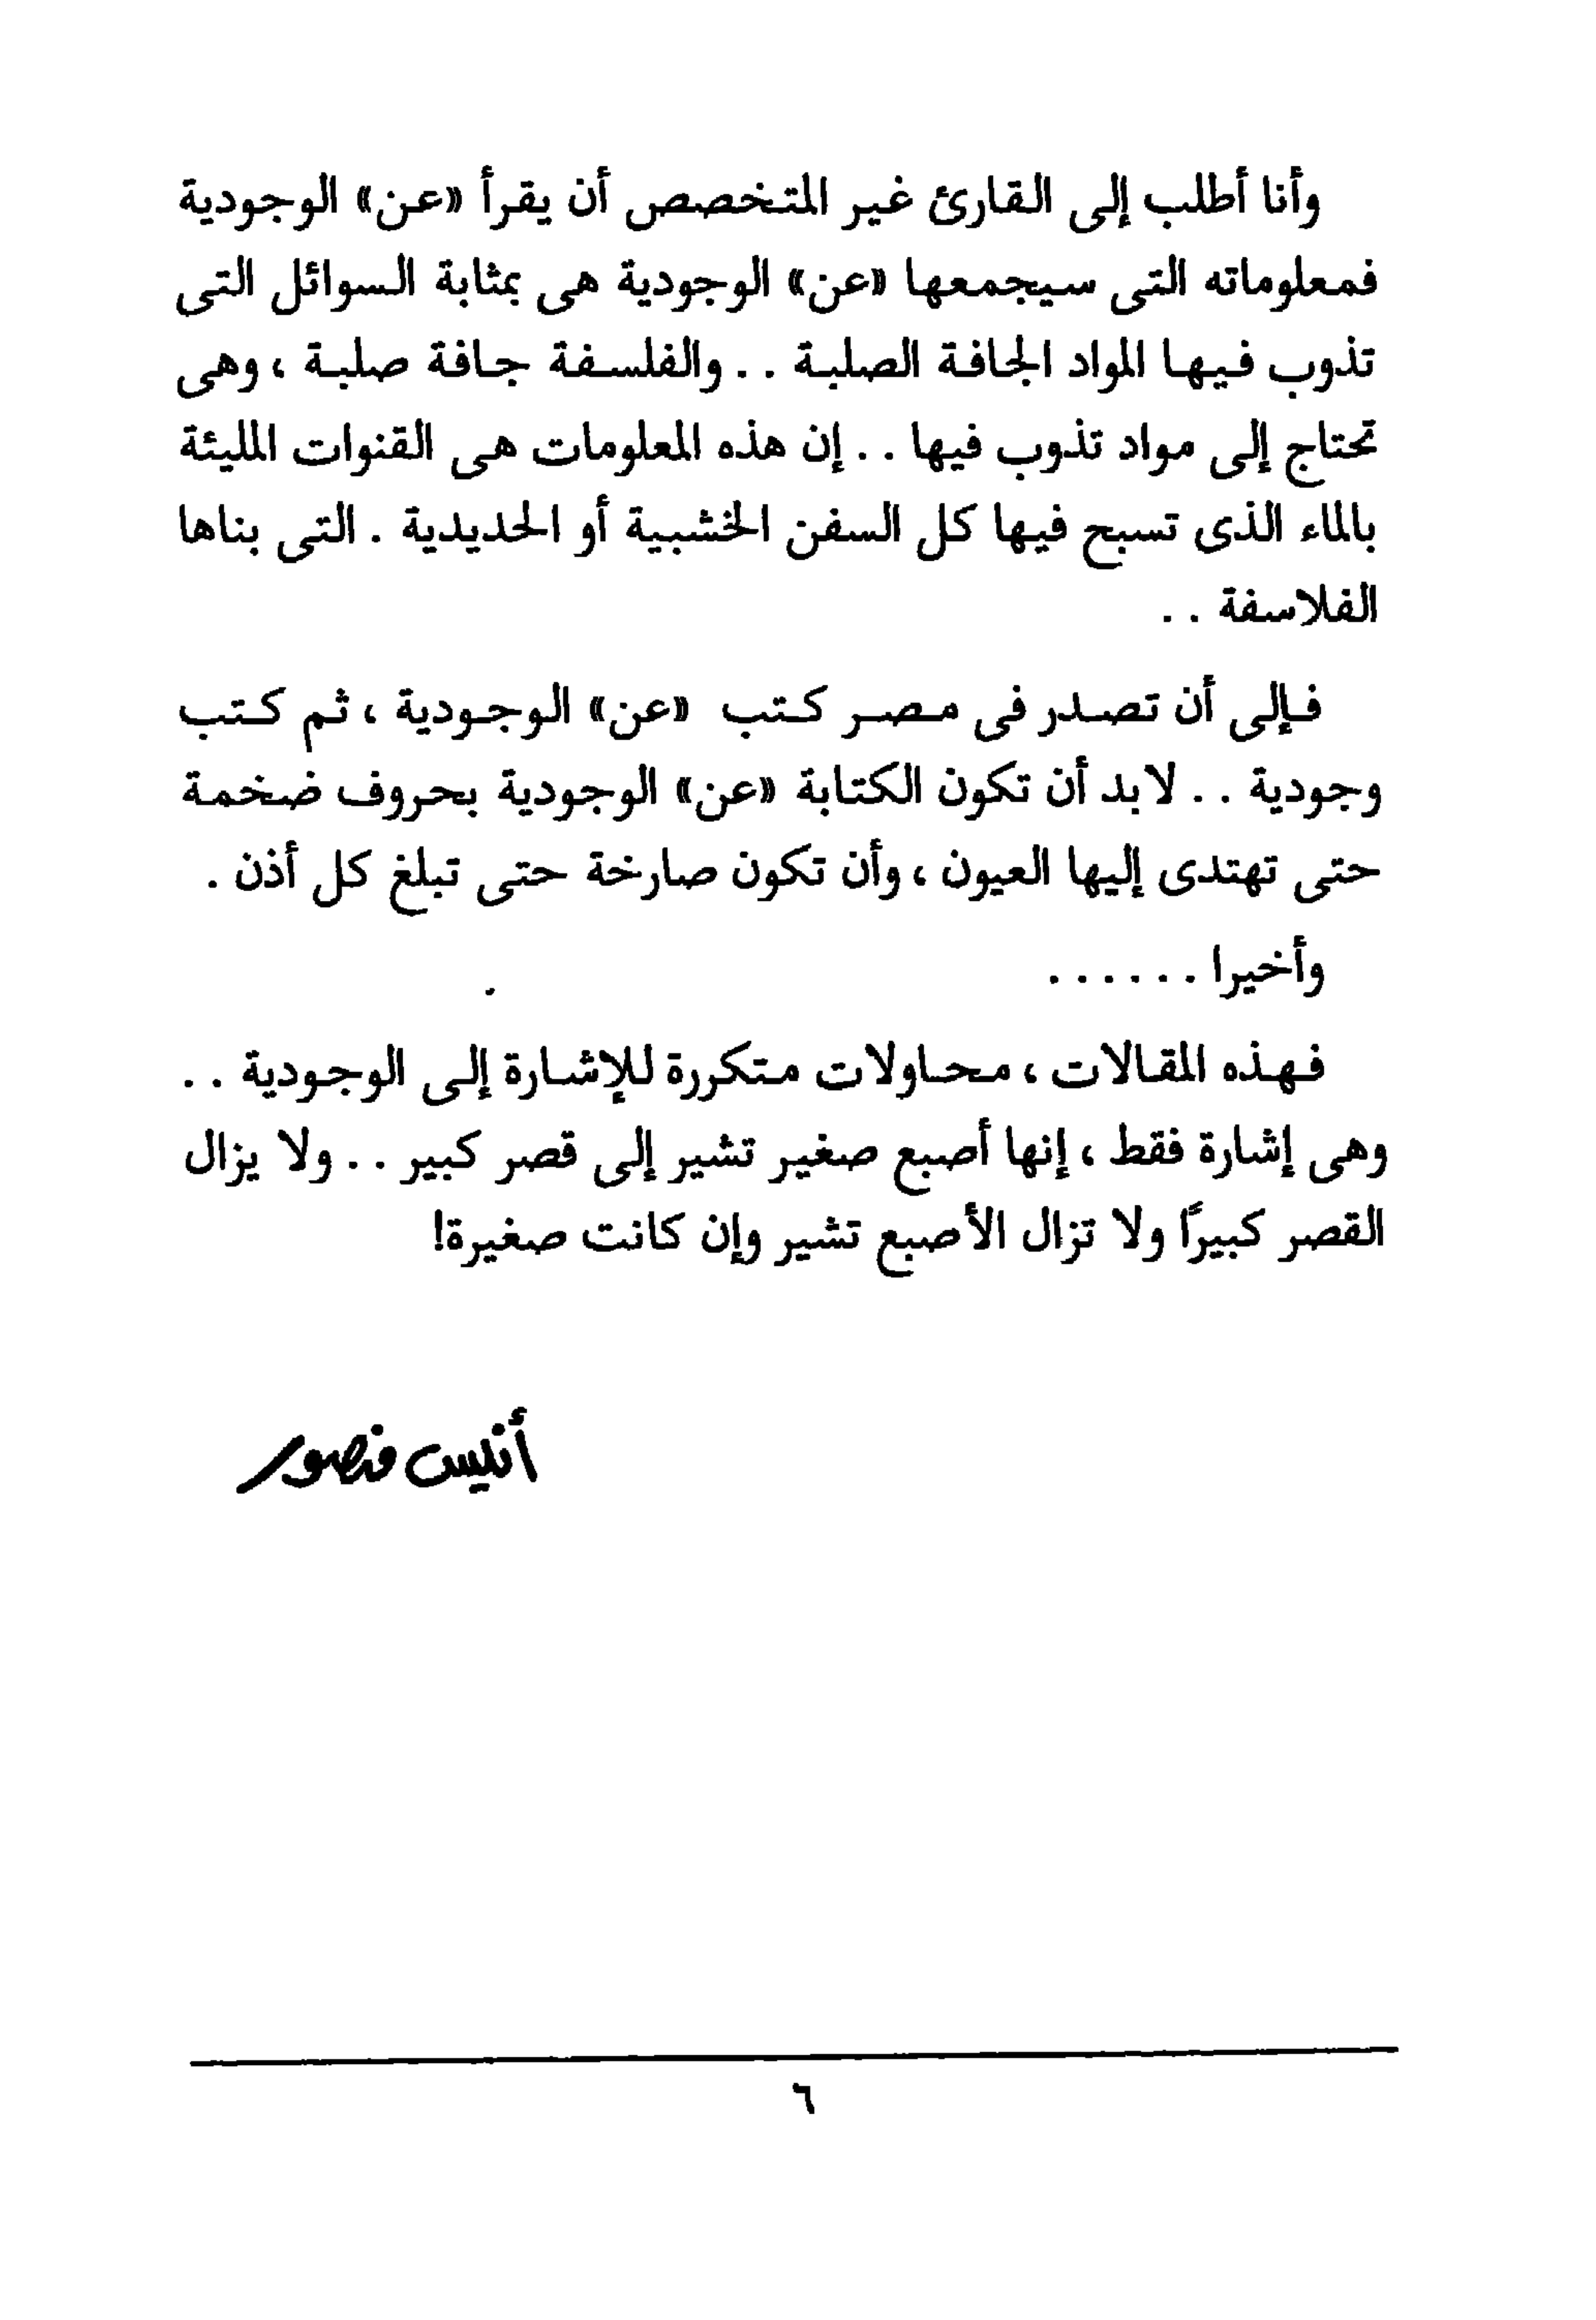 وأنا أطلب إلى القارئ غير المتخصص أن يقرأ «عن» الوجودية
فمعلوماته التى سيجمعها «عن» الوجودية هى بمثابة السوائل التى
تذوب فيها المواد الجافة الصلبة . . والفلسفة جافة صلبة ، وهى
تحتاج إلى مواد تذوب فيها . . إن هذه المعلومات هى القنوات المليئة
بالماء الذى تسبح فيها كل السفن الخشبية أو الحديدية . التى بناها
الفلاسفة . .
فإلى أن تصدر فى مصر كتب «عن» الوجودية ، ثم كتب
وجودية . . لابد أن تكون الكتابة «عن» الوجودية بحروف ضخمة
حتى تهتدى إليها العيون ، وأن تكون صارخة حتى تبلغ كل أذن .
وأخيرا . . . . . .
فهذه المقالات ، محاولات متكررة للإشارة إلى الوجودية . .
وهى إشارة فقط ، إنها أصبع صغير تشير إلى قصر كبير . . ولا يزال
القصر كبيرًا ولا تزال الأصبع تشير وإن كانت صغيرة!
أنيس منصور
٦